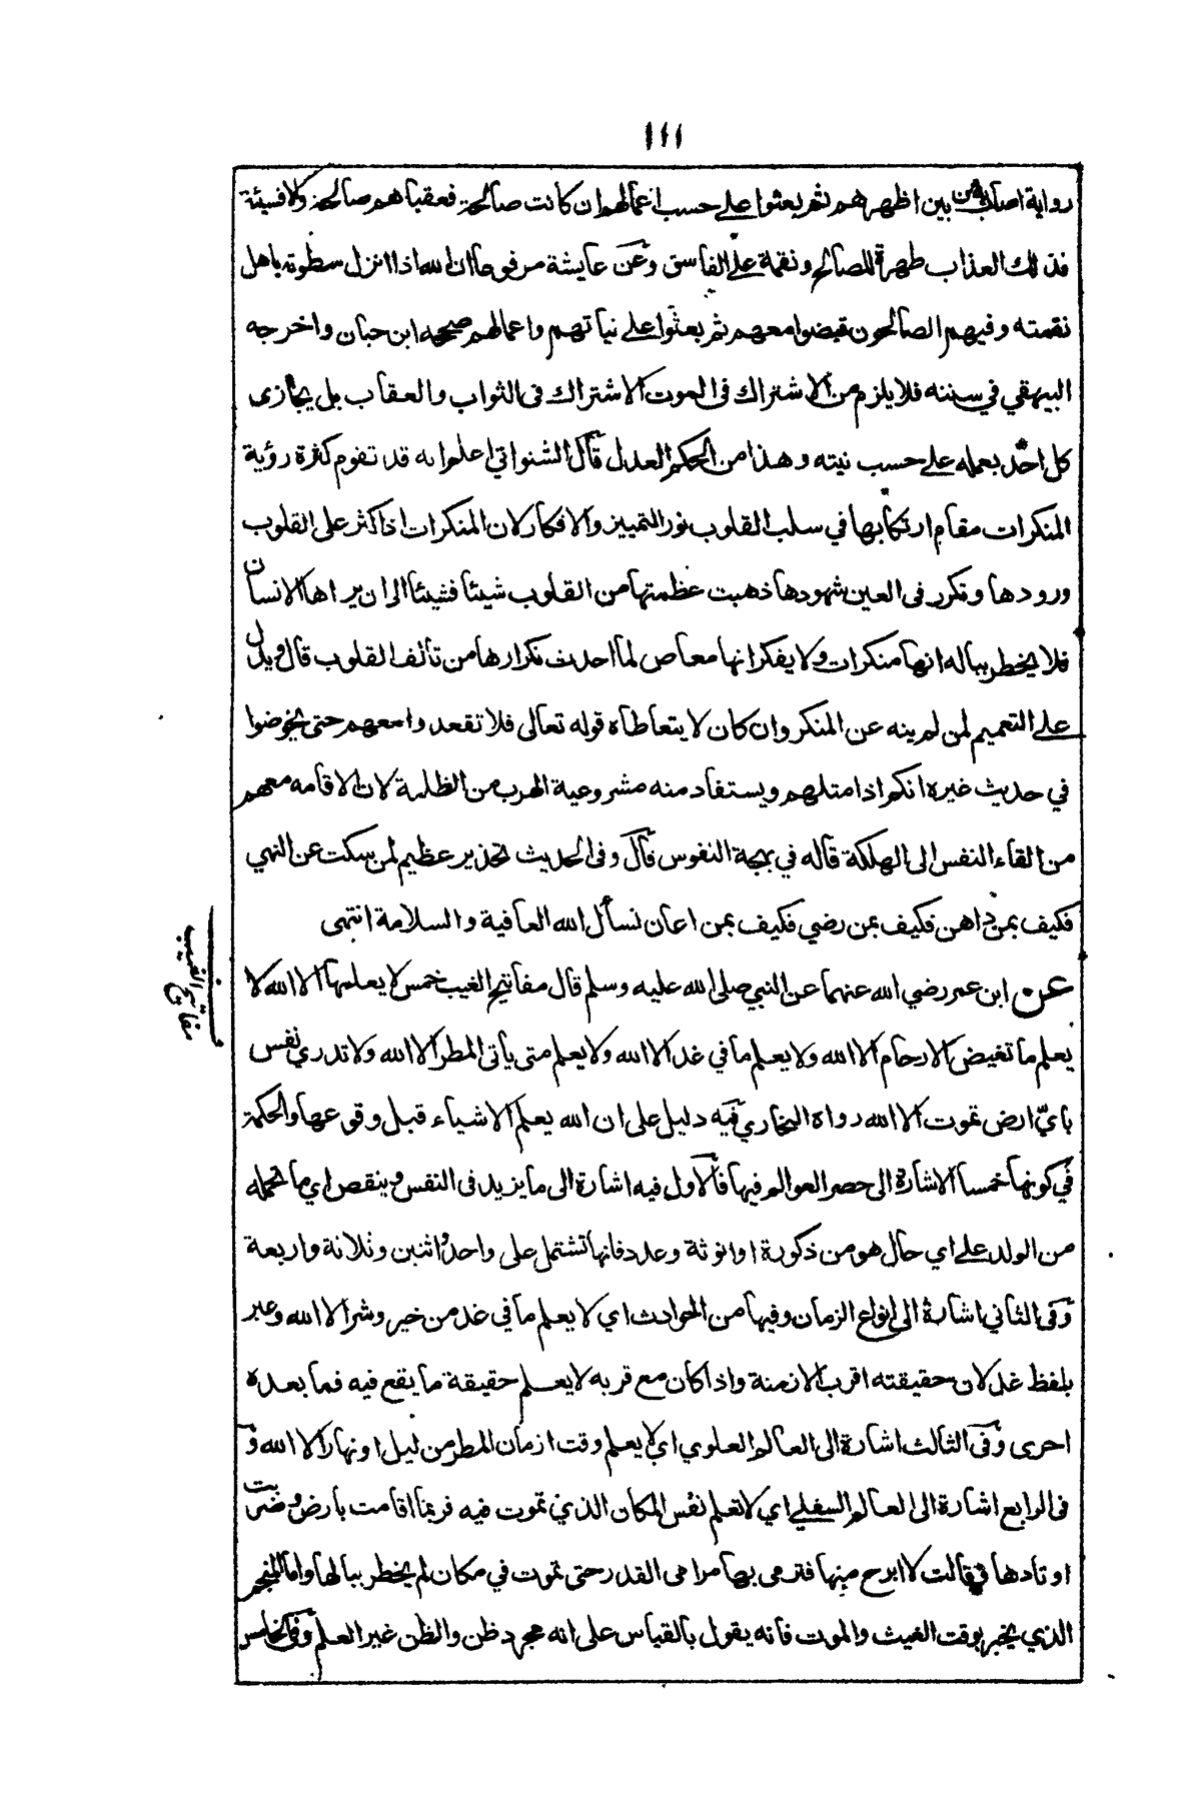 ١١١
رواية اصاب من بين اظهرهم ثم يعثوا على حسب اعمالهم ان كانت صالحة فعقباهم صالحة والا فسيئة
فذلك العذاب طهرة للصالح ونقمة على الفاسق وعن عايشة مرفوعا ان الله اذا انزل سطوته باهل
نقمته وفيهم الصالحون قبضوا معهم ثم بعثوا على نياتهم واعمالهم صححه ابن حبان واخرجه
البيهقي في سننه فلا يلزم من الاشتراك في الموت الاشتراك في الثواب والعقاب بل يجازى
كل احد بعمله على حسب نيته وهذا من الحكم العدل قال الشنواني اعلموا انه قد تقوم كثرة رؤية
المنكرات مقام ارتكابها في سلب القلوب نور التمييز والافكار لان المنكرات اذا كثر على القلوب
ورودها وتكرر في العين شهودها ذهبت عظمتها من القلوب شيئا فشيئا الى ان يراها الانسان
فلا يخطر بباله انها منكرات ولا يفكر انها معاص لما احدث تكرارها من تألف القلوب قال ويدل
على التعميم لمن لم ينه عن المنكر وان كان لا يتعاطاه قوله تعالى فلا تقعدوا معهم حتى يخوضوا
في حديث غيره انكم اذا مثلهم ويستفاد منه مشروعية الهرب من الظلمة لان الاقامه معهم
من القاء النفس الى الهلكة قاله في بهجة النفوس قال وفي الحديث تحذير عظيم لمن سكت عن النهي
فكيف بمن داهن فكيف بمن رضي فكيف بمن اعان نسأل الله العافية والسلامة انتهى
عن ابن عمر رضي الله عنهما عن النبي صلى الله عليه وسلم قال مفاتيح الغيب خمس لا يعلمها الا الله لا
يعلم ما تغيض الارحام الا الله ولا يعلم ما في غد الا الله ولا يعلم متى يأتى المطر الا الله ولا تدري نفس
بايّ ارض تموت الا الله رواه البخاري فيه دليل على ان الله يعلم الاشياء قبل وقوعها والحكمة
في كونها خمسا الاشارة الى حصر العوالم فيها فالاول فيه اشارة الى ما يزيد في النفس وينقص اي ما تحمله
من الولد على اي حال هو من ذكورة او انوثة وعدد فانها تشتمل على واحد واثنين وثلاثة واربعة
وفي الثاني اشارة الى انواع الزمان وفيها من الحوادث اي لا يعلم ما في غد من خير وشر الا الله وعبر
بلفظ غد لان حقيقته اقرب الازمنة واذا كان مع قربه لا يعلم حقيقة ما يقع فيه فما بعده
احرى وفي الثالث اشارة الى العالم العلوي اي لا يعلم وقت ازمان المطر من ليل او نهار الا الله و
في الرابع اشارة الى العالم السفلي اي لا تعلم نفس المكان الذي تموت فيه فربما اقامت بارض وضربت
اوتادها فقالت لا ابرح منها فترمى بها مرامى القدر حتى تموت في مكان لم يخطر ببالها واما المنجم
الذي يخبر بوقت الغيث والموت فانه يقول بالقياس على انه مجرد ظن والظن غير العلم وفي الخامس
مفاتيح الغيب